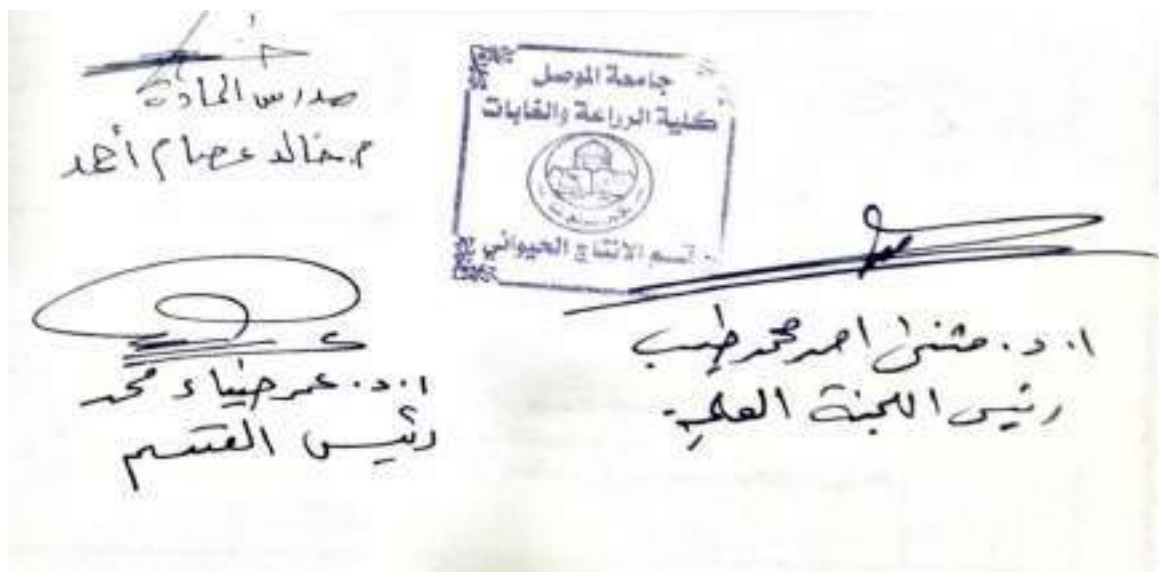 مدرس المادة
م. خالد عصام أحمد
جامعة الموصل
كلية الزراعة والغابات
قسم الانتاج الحيواني
ا. د. مثنى احمد محمد طيب
رئيس اللجنة العلمية
ا. د. عمر ضياء محمد
رئيس القسم